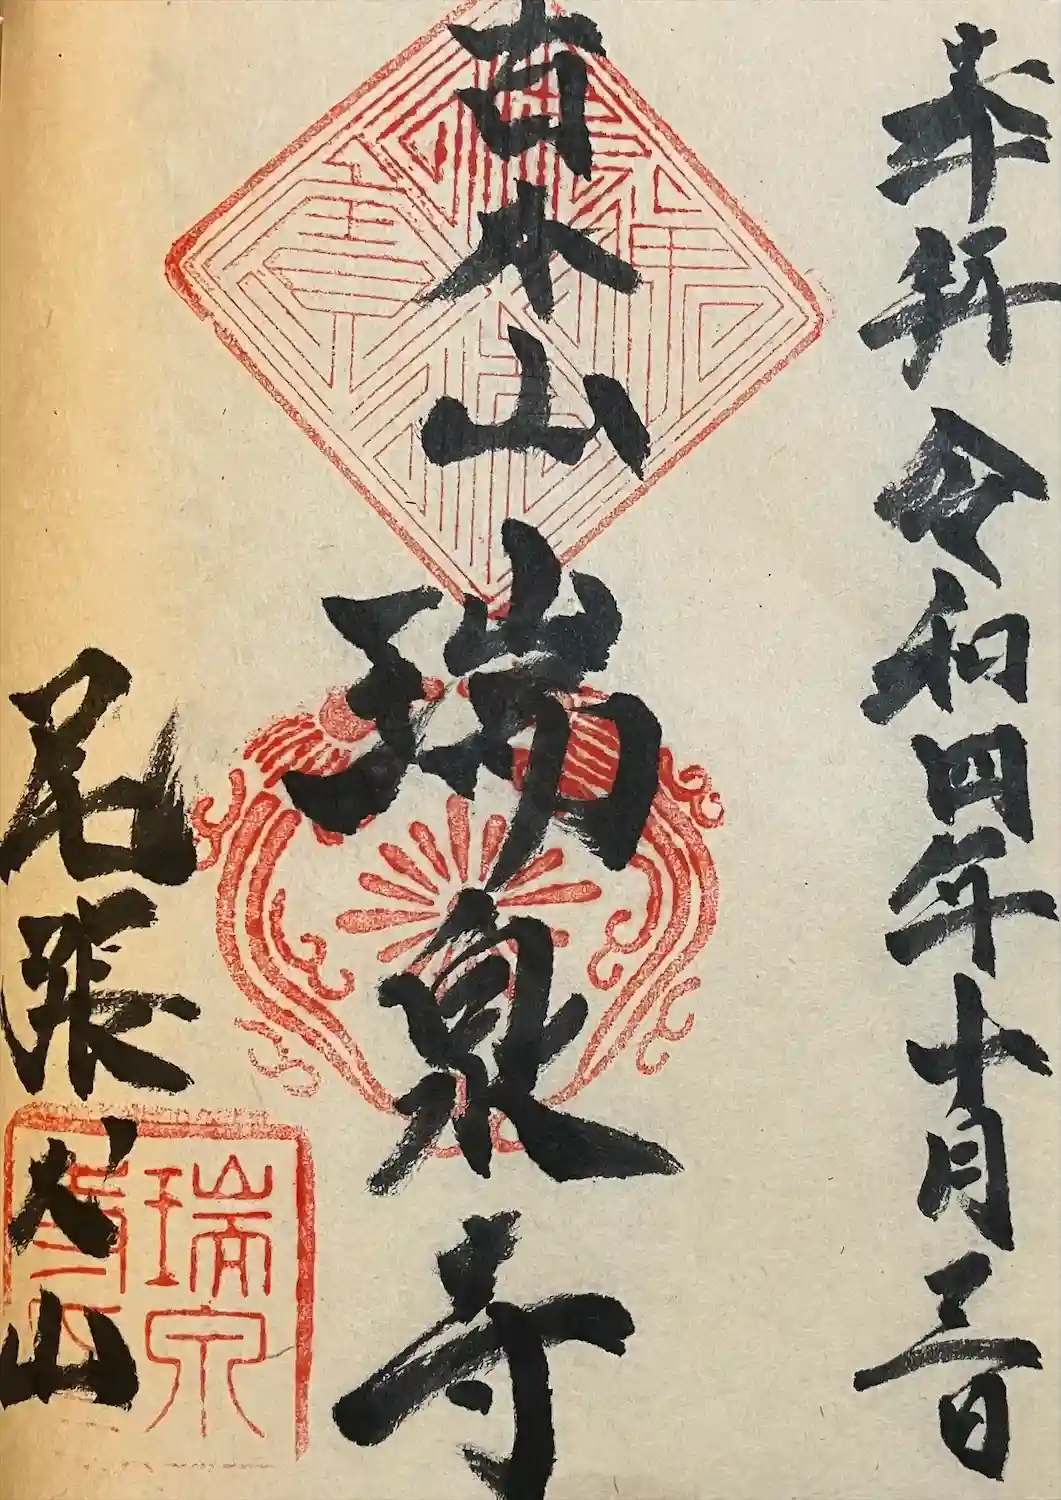 奉拝 令和四年十月三日
木山 瑞泉寺
尾張犬山
瑞泉